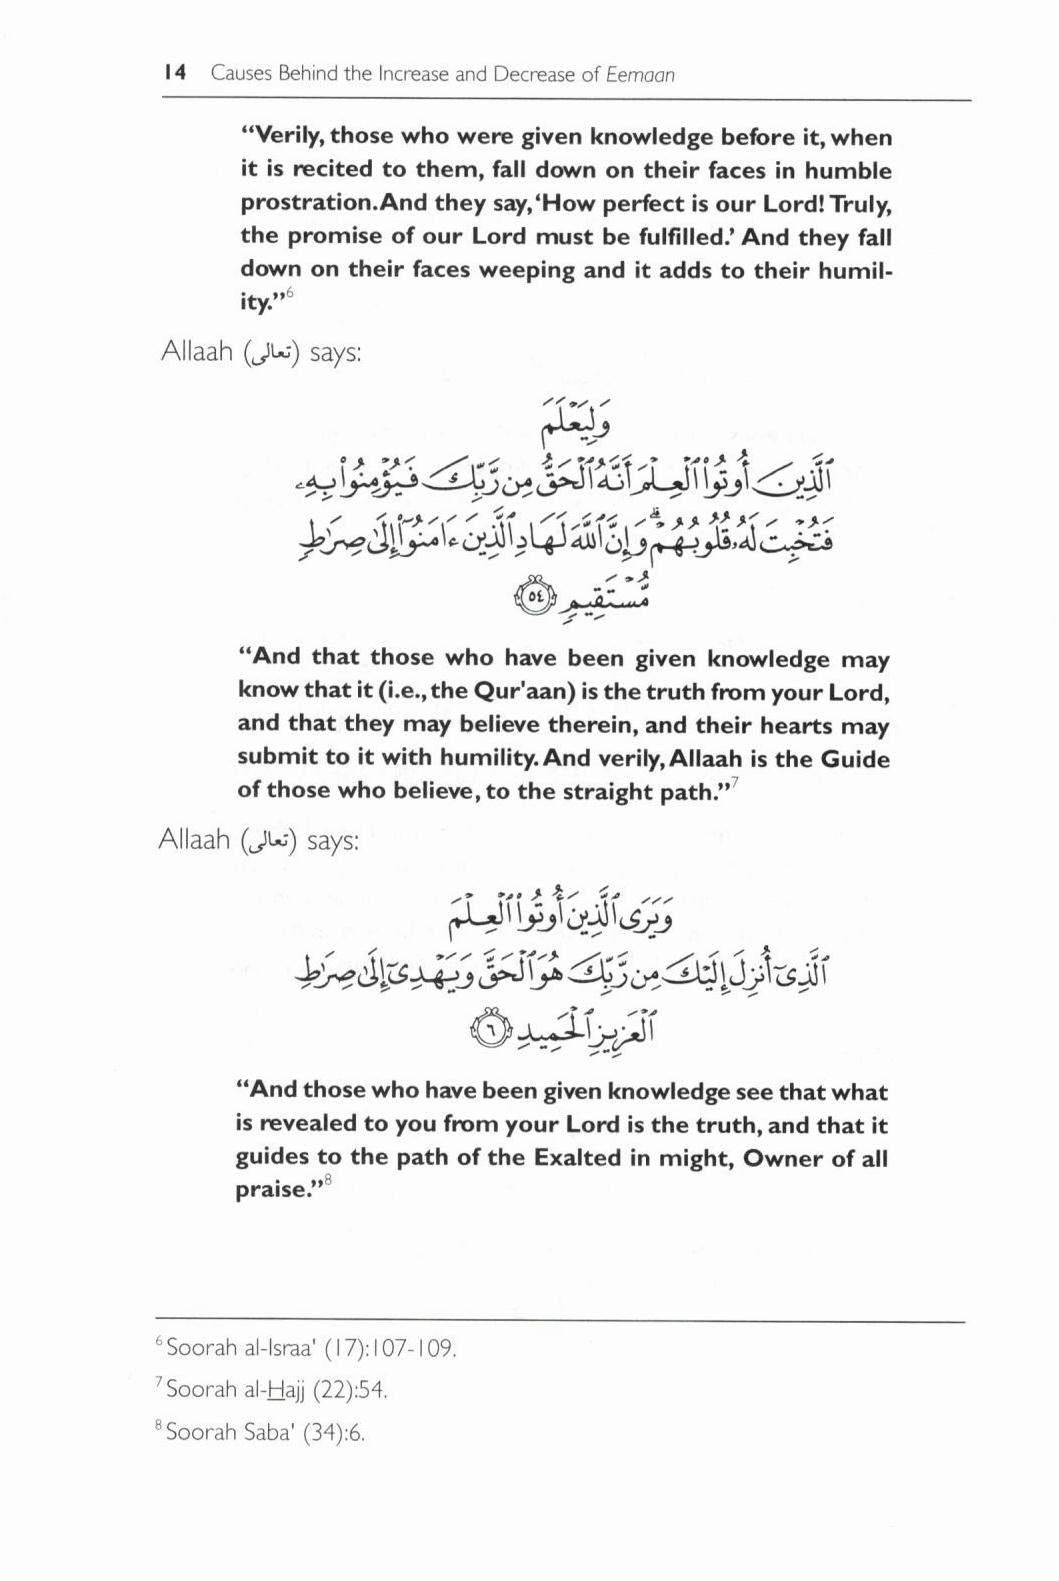 14 Causes Behind the Increase and Decrease of Eemaan
“Verily, those who were given knowledge before it, when
it is recited to them, fall down on their faces in humble
prostration. And they say, ‘How perfect is our Lord! Truly,
the promise of our Lord must be fulfilled.’ And they fall
down on their faces weeping and it adds to their humil-
ity.”⁶
Allaah (تعالى) says:
وَلِيَعْلَمَ
ٱلَّذِينَ أُوتُوا۟ ٱلْعِلْمَ أَنَّهُ ٱلْحَقُّ مِن رَّبِّكَ فَيُؤْمِنُوا۟ بِهِۦ
فَتُخْبِتَ لَهُۥ قُلُوبُهُمْ ۗ وَإِنَّ ٱللَّهَ لَهَادِ ٱلَّذِينَ ءَامَنُوٓا۟ إِلَىٰ صِرَٰطٍ
مُّسْتَقِيمٍ ﴿٥٤﴾
“And that those who have been given knowledge may
know that it (i.e., the Qur'aan) is the truth from your Lord,
and that they may believe therein, and their hearts may
submit to it with humility. And verily, Allaah is the Guide
of those who believe, to the straight path.”⁷
Allaah (تعالى) says:
وَيَرَى ٱلَّذِينَ أُوتُوا۟ ٱلْعِلْمَ
ٱلَّذِىٓ أُنزِلَ إِلَيْكَ مِن رَّبِّكَ هُوَ ٱلْحَقَّ وَيَهْدِىٓ إِلَىٰ صِرَٰطِ
ٱلْعَزِيزِ ٱلْحَمِيدِ ﴿٦﴾
“And those who have been given knowledge see that what
is revealed to you from your Lord is the truth, and that it
guides to the path of the Exalted in might, Owner of all
praise.”⁸
⁶ Soorah al-Israa' (17):107-109.
⁷ Soorah al-Hajj (22):54.
⁸ Soorah Saba' (34):6.